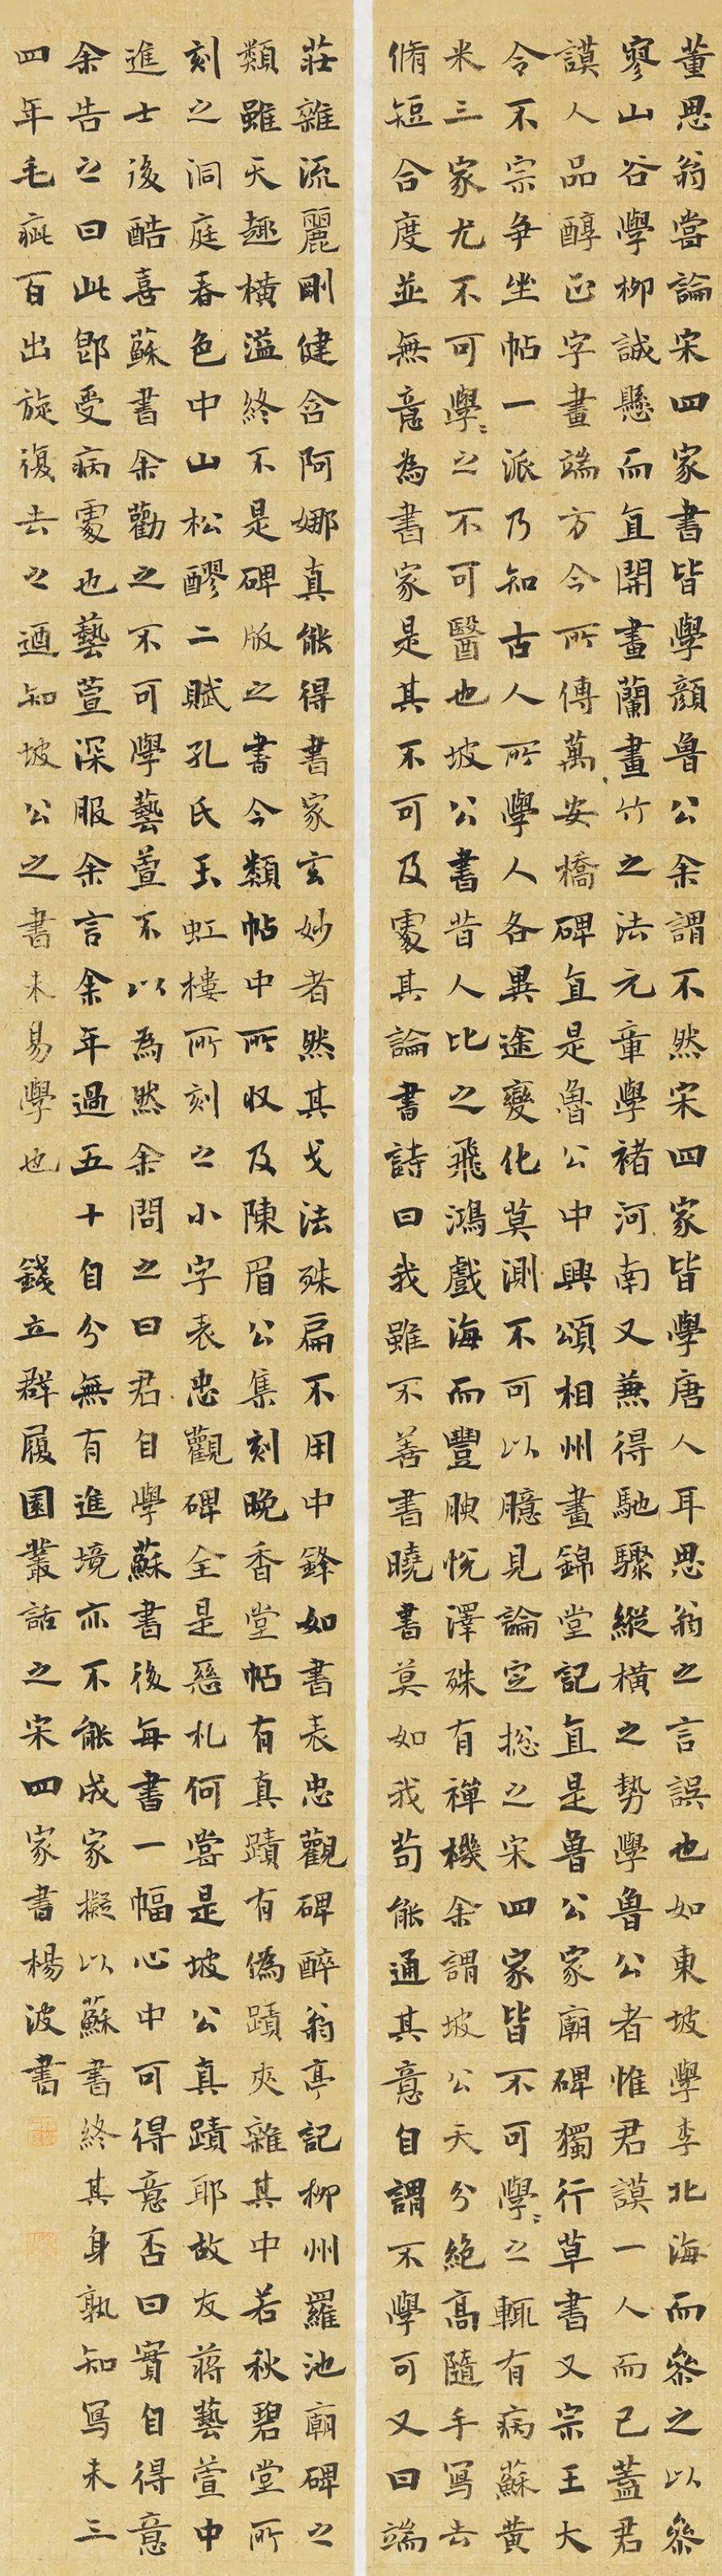 董思翁嘗論宋四家書皆學顏魯公余謂不然宋四家皆學唐人耳思翁之言誤也如東坡學李北海而參之以參
寥山谷學柳誠懸而直開畫蘭畫竹之法元章學褚河南又兼得馳驟縱橫之勢學魯公者惟君謨一人而已蓋君
謨人品醇正字畫端方今所傳萬安橋碑直是魯公中興頌相州晝錦堂記直是魯公家廟碑獨行草書又宗王大
令不宗爭坐帖一派乃知古人所學人各異途變化莫測不可以臆見論定揔之宋四家皆不可學〻之輒有病蘇黃
米三家尤不可學〻之不可醫也坡公書昔人比之飛鴻戲海而豐腴悅澤殊有禪機余謂坡公天分絕高隨手寫去
脩短合度並無意為書家是其不可及處其論書詩曰我雖不善書曉書莫如我苟能通其意自謂不學可又曰端
莊雜流麗剛健含阿娜真能得書家玄妙者然其戈法殊扁不用中鋒如書表忠觀碑醉翁亭記柳州羅池廟碑之
類雖天趣橫溢終不是碑版之書今類帖中所收及陳眉公集刻晚香堂帖有真蹟有偽蹟夾雜其中若秋碧堂所
刻之洞庭春色中山松醪二賦孔氏玉虹樓所刻之小字表忠觀碑全是惡札何嘗是坡公真蹟耶故友蔣藝萱中
進士後酷喜蘇書余勸之不可學藝萱不以為然余問之曰君自學蘇書後每書一幅心中可得意否曰實自得意
余告之曰此即受病處也藝萱深服余言余年過五十自分無有進境亦不能成家擬以蘇書終其身孰知寫未三
四年毛疵百出旋復去之迺知坡公之書未易學也 錢立群履園叢話之宋四家書楊波書